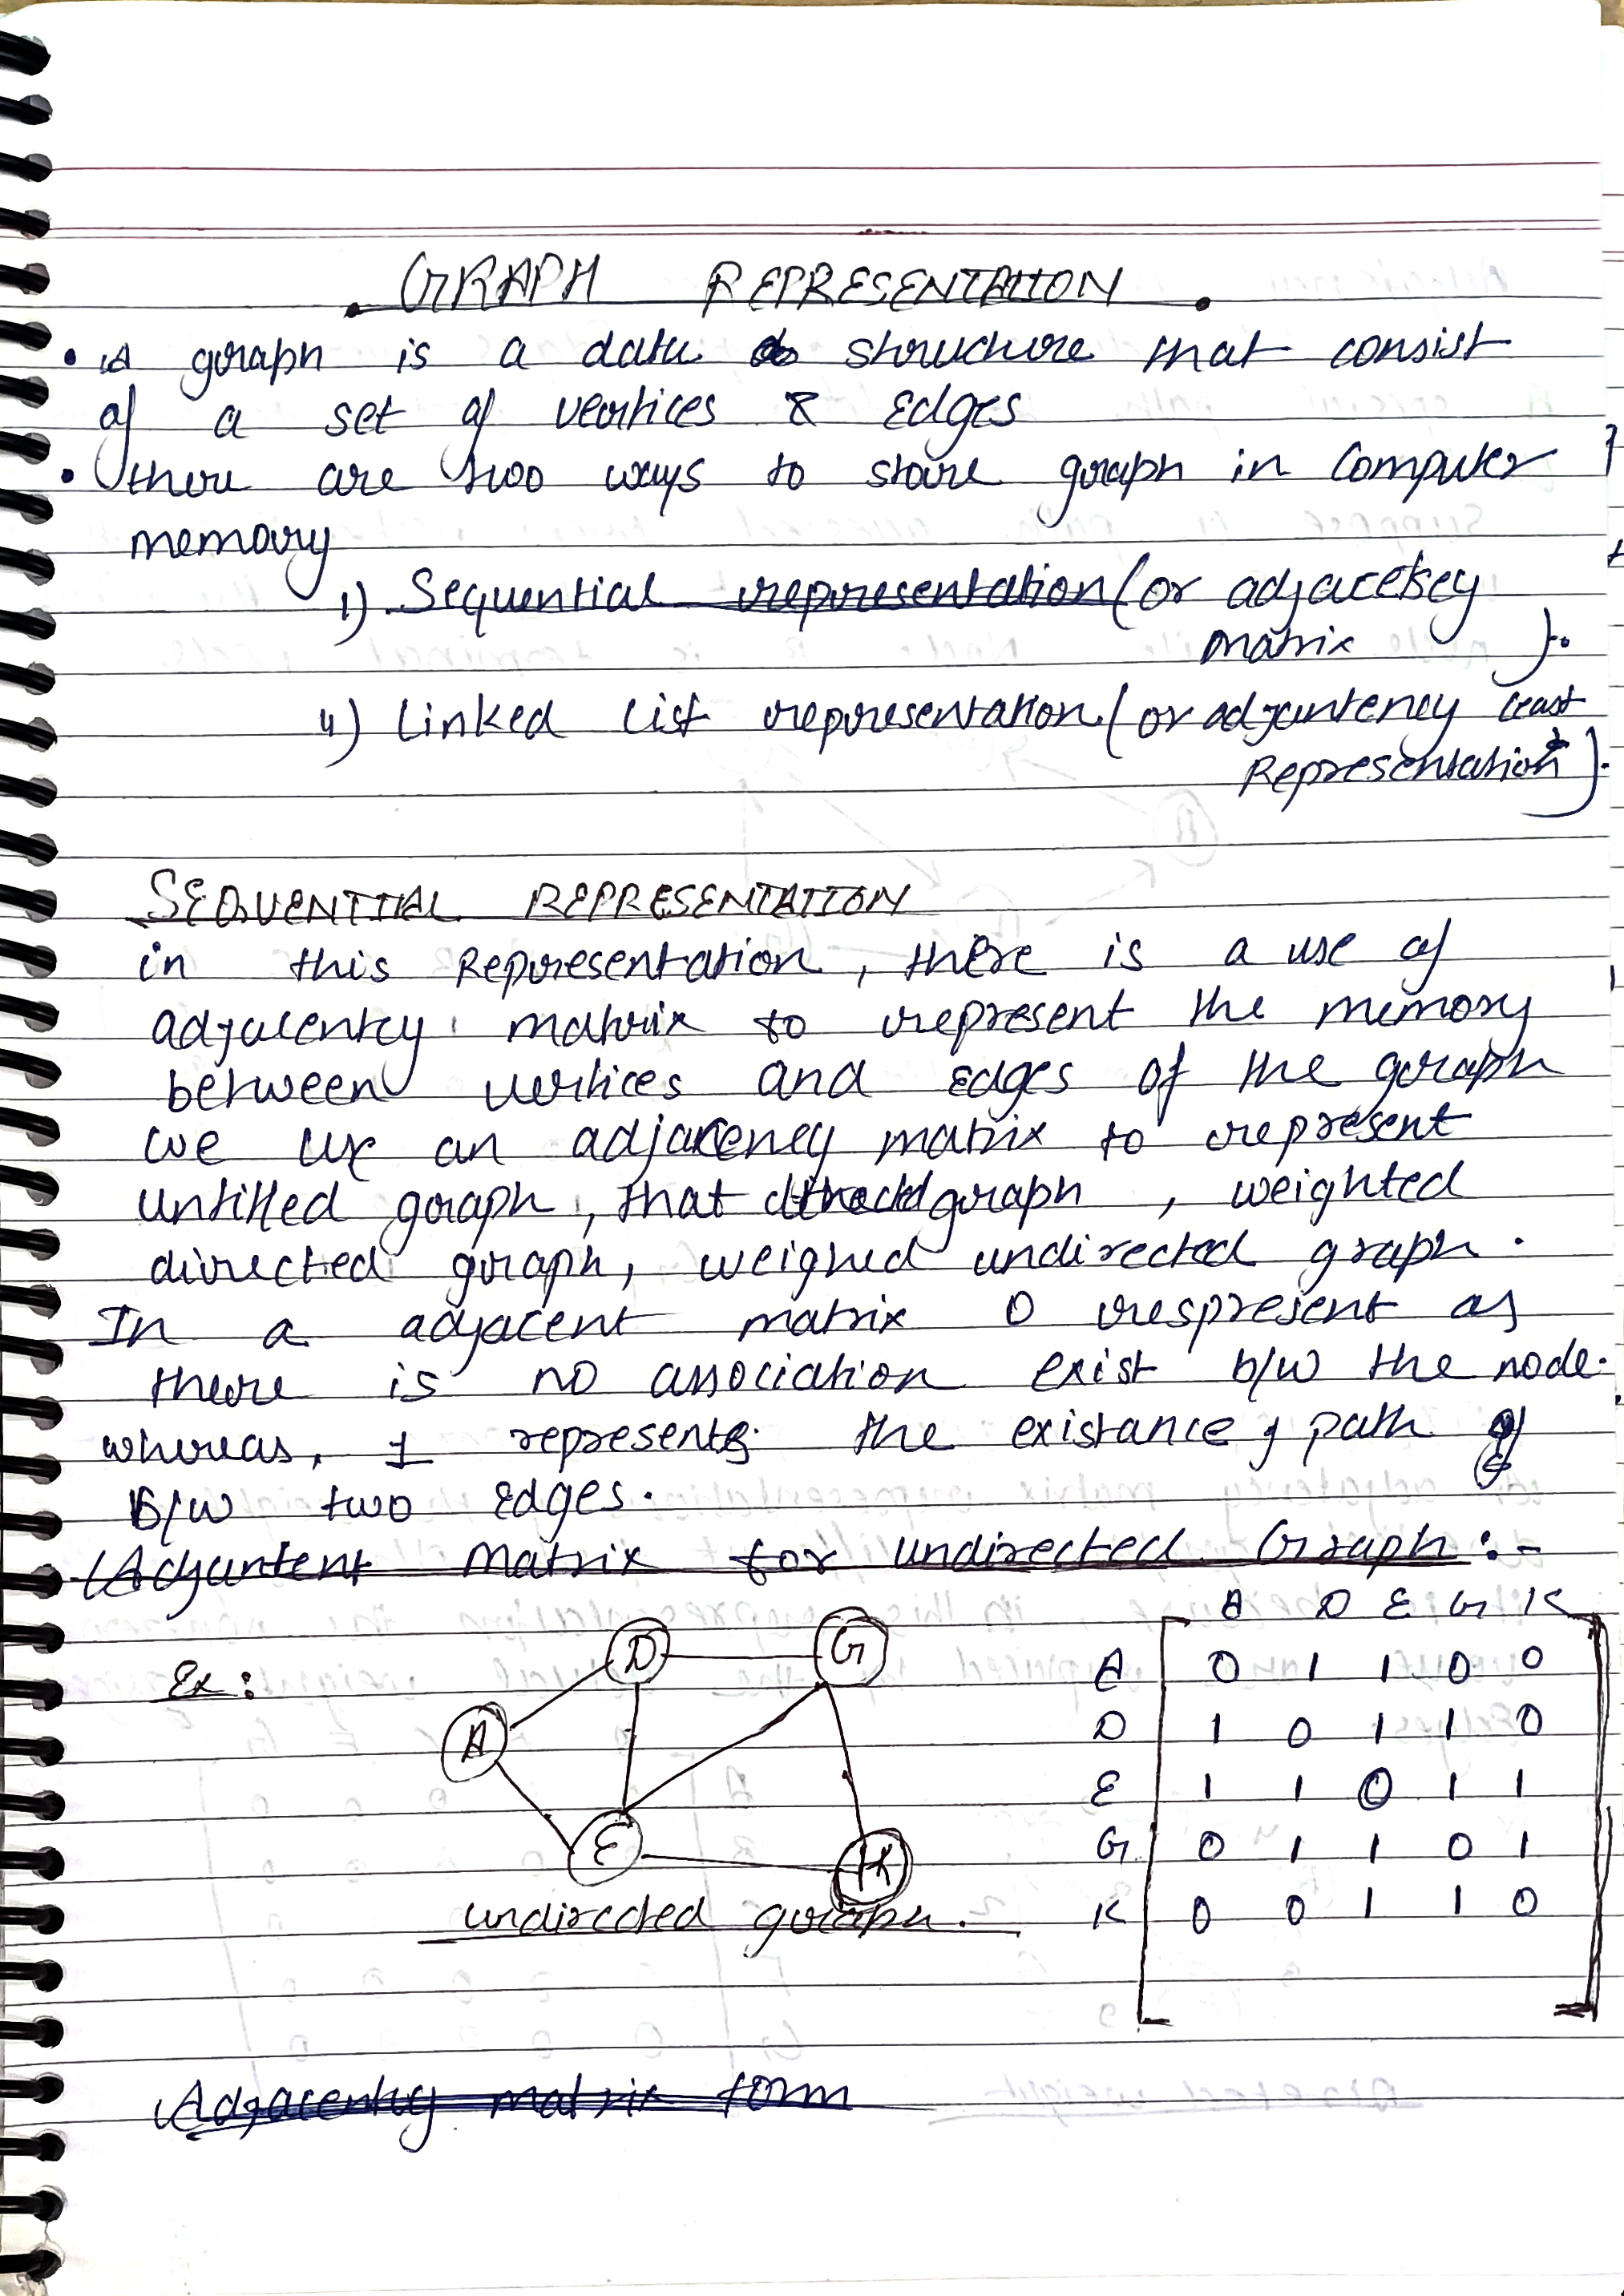 GRAPH REPRESENTATION
• A graph is a data structure that consist
of a set of vertices & Edges
• there are two ways to store graph in Computer
memory
1) Sequential representation (or adjacetsey
matrix ).
11) linked list representation (or adjantency least
Representation).
SEQUENTIAL REPRESENTATION
in this Representation, there is a use of
adjacentcy matrix to represent the memory
between vertices and edges of the graph
we use an adjacency matrix to represent
untitled graph, that graph, weighted
directed graph, weighed undirected graph.
In a adjacent matrix 0 respresent as
there is no association exist b/w the node.
whereas, 1 represents the existance of path
B/w two edges.
Adjantent Matrix for undirected Graph :-
A D E G K
Ex:
D G
A
E K
undirected graph.
A 0 1 1 0 0
D 1 0 1 1 0
E 1 1 0 1 1
G 0 1 1 0 1
K 0 0 1 1 0
Adjacentcy matrix form